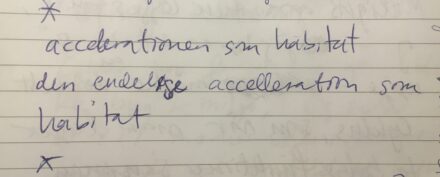 *
accelerationen som habitat
den endelige accelleration som
habitat
*